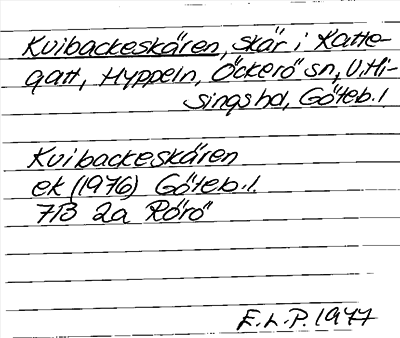 Kvibackeskären, skär i Katte-
gatt, Hyppeln, Öckerö sn, V. Hi-
sings hd, Göteb. l
Kvibackeskären
ek (1976) Göteb. l.
7B 2a Rörö
E.L.P. 1977